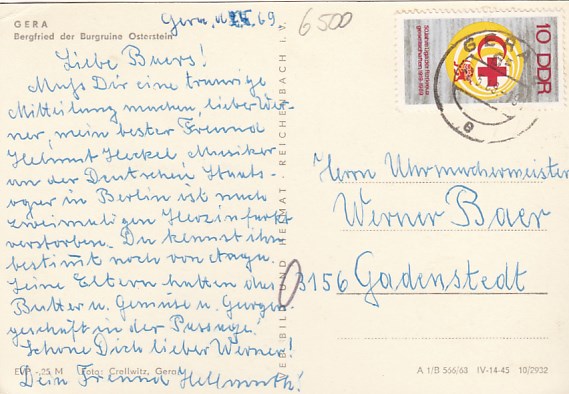 GERA
Bergfried der Burgruine Osterstein
Gera, d. 69
6500
Liebe Baers!
Muß Dir eine traurige
Mitteilung machen, lieber Wer-
ner, mein bester Freund
Helmut Heckel, Musiker
an der Deutschen Staats-
oper in Berlin ist nach
zweimaligen Herzinfarkt
verstorben. Du kennst ihn
bestimt noch von
Seine Eltern hatten das
Butter u. Gemüse u.
geschäft in der Passage!
Schone Dich lieber Werner!
Dein Freund Hellmuth!
EVP -,25 M Foto: Crellwitz, Gera
VEB BILD UND HEIMAT · REICHENBACH I. V.
10 DDR
GERA
e
Herrn Uhrmachermeister
Werner Baer
3156 Gadenstedt
A 1/B 566/63 IV-14-45 10/2932